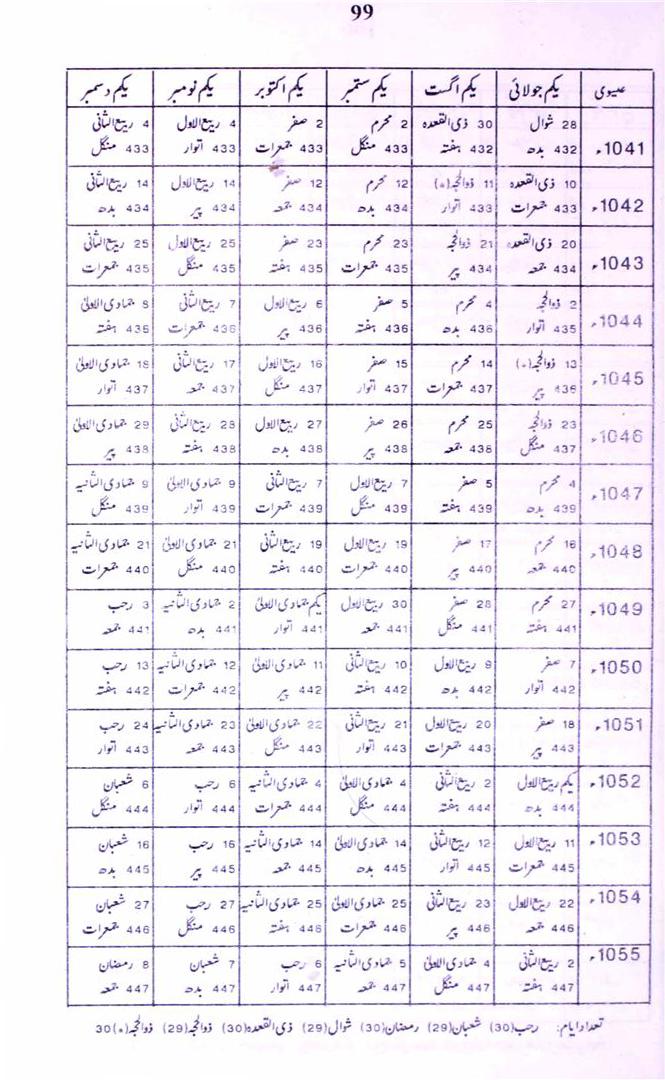 99
عیسوی یکم جولائی یکم اگست یکم ستمبر یکم اکتوبر یکم نومبر یکم دسمبر
1041ء 28 شوال 30 ذی القعدہ 2 محرم 2 صفر 4 ربیع الاول 4 ربیع الثانی
432 بدھ 432 ہفتہ 433 منگل 433 جمعرات 433 اتوار 433 منگل
1042ء 10 ذی القعدہ 11 ذوالحجہ(*) 12 محرم 12 صفر 14 ربیع الاول 14 ربیع الثانی
433 جمعرات 433 اتوار 434 بدھ 434 جمعہ 434 پیر 434 بدھ
1043ء 20 ذی القعدہ 21 ذوالحجہ 23 محرم 23 صفر 25 ربیع الاول 25 ربیع الثانی
434 جمعہ 434 پیر 435 جمعرات 435 ہفتہ 435 منگل 435 جمعرات
1044ء 2 ذوالحجہ 4 محرم 5 صفر 6 ربیع الاول 7 ربیع الثانی 8 جمادی الاولیٰ
435 اتوار 436 بدھ 436 ہفتہ 436 پیر 436 جمعرات 436 ہفتہ
1045ء 13 ذوالحجہ(*) 14 محرم 15 صفر 16 ربیع الاول 17 ربیع الثانی 18 جمادی الاولیٰ
436 پیر 437 جمعرات 437 اتوار 437 منگل 437 جمعہ 437 اتوار
1046ء 23 ذوالحجہ 25 محرم 26 صفر 27 ربیع الاول 28 ربیع الثانی 29 جمادی الاولیٰ
437 منگل 438 جمعہ 438 پیر 438 بدھ 438 ہفتہ 438 پیر
1047ء 4 محرم 5 صفر 7 ربیع الاول 7 ربیع الثانی 9 جمادی الاولیٰ 9 جمادی الثانیہ
439 بدھ 439 ہفتہ 439 منگل 439 جمعرات 439 اتوار 439 منگل
1048ء 16 محرم 17 صفر 19 ربیع الاول 19 ربیع الثانی 21 جمادی الاولیٰ 21 جمادی الثانیہ
440 جمعہ 440 پیر 440 جمعرات 440 ہفتہ 440 منگل 440 جمعرات
1049ء 27 محرم 28 صفر 30 ربیع الاول یکم جمادی الاولیٰ 2 جمادی الثانیہ 3 رجب
441 ہفتہ 441 منگل 441 جمعہ 441 اتوار 441 بدھ 441 جمعہ
1050ء 7 صفر 9 ربیع الاول 10 ربیع الثانی 11 جمادی الاولیٰ 12 جمادی الثانیہ 13 رجب
442 اتوار 442 بدھ 442 ہفتہ 442 پیر 442 جمعرات 442 ہفتہ
1051ء 18 صفر 20 ربیع الاول 21 ربیع الثانی 22 جمادی الاولیٰ 23 جمادی الثانیہ 24 رجب
443 پیر 443 جمعرات 443 اتوار 443 منگل 443 جمعہ 443 اتوار
1052ء یکم ربیع الاول 2 ربیع الثانی 4 جمادی الاولیٰ 4 جمادی الثانیہ 6 رجب 6 شعبان
444 بدھ 444 ہفتہ 444 منگل 444 جمعرات 444 اتوار 444 منگل
1053ء 11 ربیع الاول 12 ربیع الثانی 14 جمادی الاولیٰ 14 جمادی الثانیہ 16 رجب 16 شعبان
445 جمعرات 445 اتوار 445 بدھ 445 جمعہ 445 پیر 445 بدھ
1054ء 22 ربیع الاول 23 ربیع الثانی 25 جمادی الاولیٰ 25 جمادی الثانیہ 27 رجب 27 شعبان
446 جمعہ 446 پیر 446 جمعرات 446 ہفتہ 446 منگل 446 جمعرات
1055ء 2 ربیع الثانی 4 جمادی الاولیٰ 5 جمادی الثانیہ 6 رجب 7 شعبان 8 رمضان
447 ہفتہ 447 منگل 447 جمعہ 447 اتوار 447 بدھ 447 جمعہ
تعداد ایام: رجب(30) شعبان(29) رمضان(30) شوال(29) ذی القعدہ(30) ذوالحجہ(29) ذوالحجہ(*)30